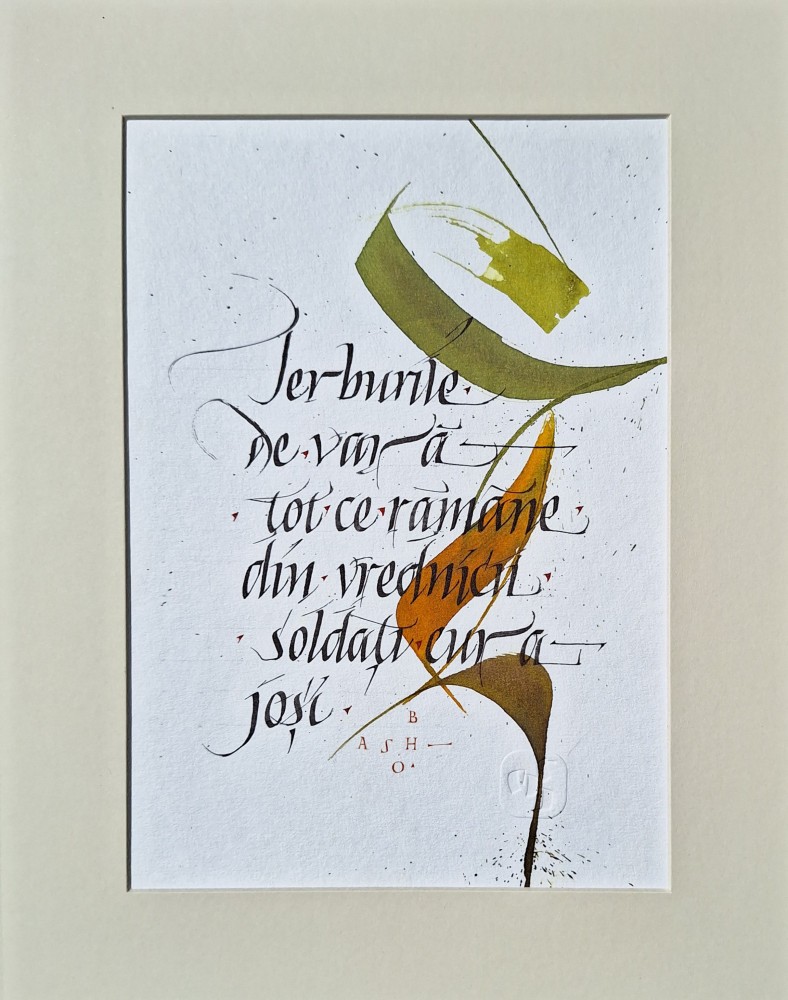 Ierburile
de vară
tot ce rămâne
din vrednicii
soldați cura
joși.
B
A S H
O